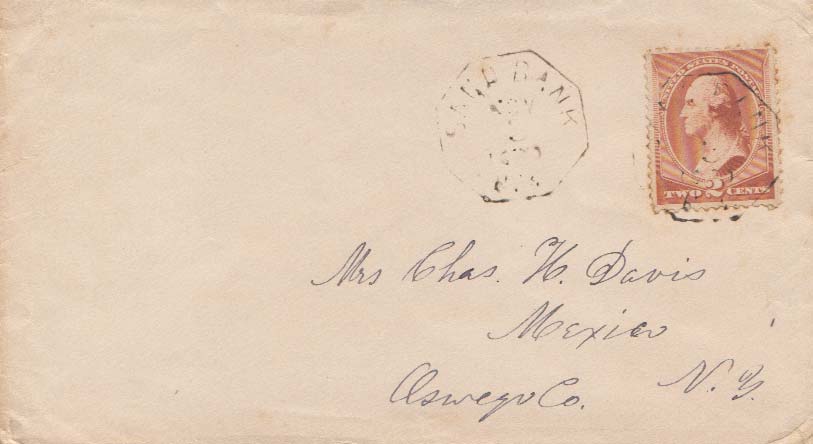 SAND BANK
NOV
UNITED STATES POSTAGE
2
TWO CENTS
Mrs Chas. H. Davis
Mexico
Oswego Co. N. Y.